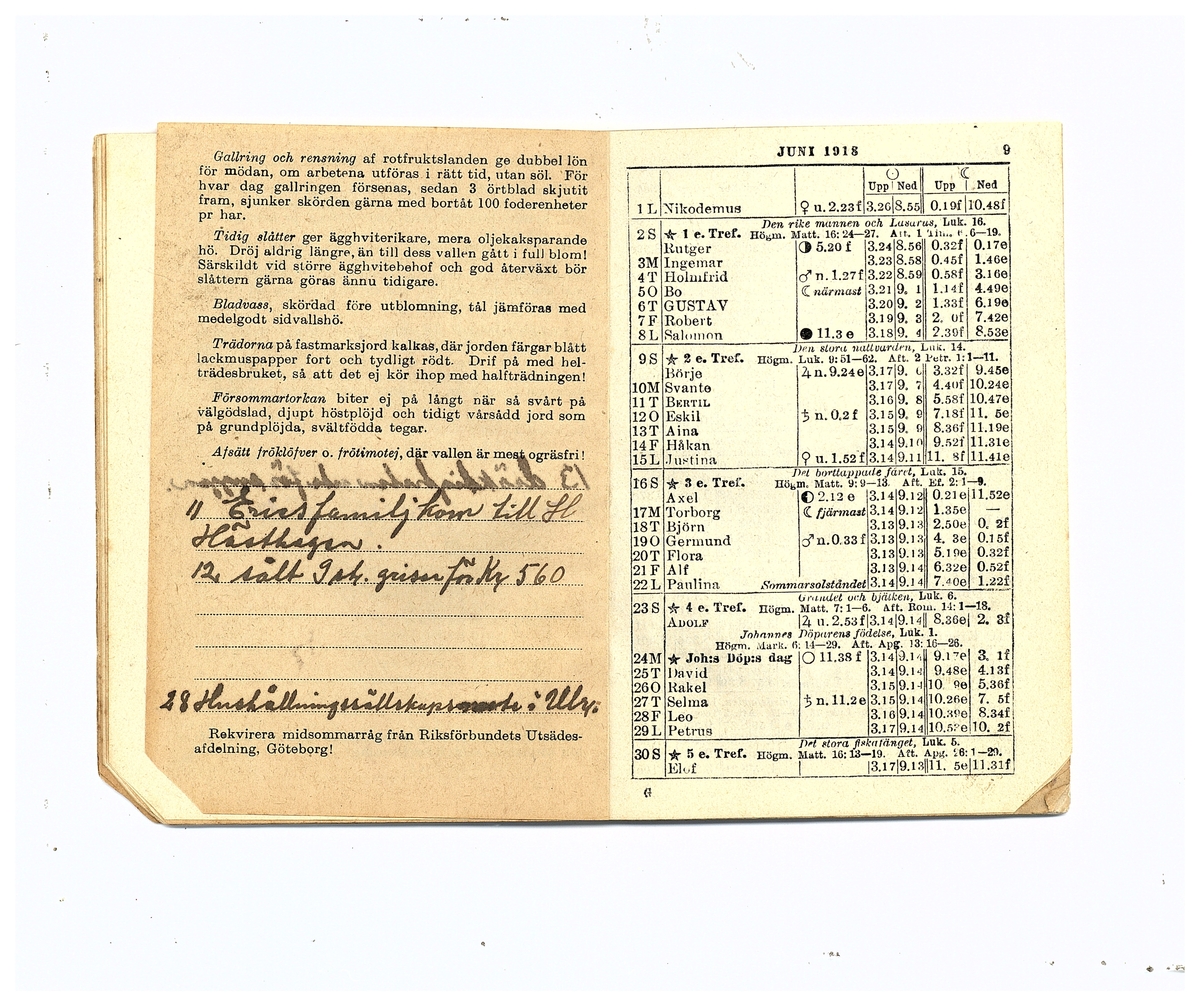 Gallring och rensning af rotfruktslanden ge dubbel lön
för mödan, om arbetena utföras i rätt tid, utan söl. För
hvar dag gallringen försenas, sedan 3 örtblad skjutit
fram, sjunker skörden gärna med bortåt 100 foderenheter
pr har.
Tidig slåtter ger ägghviterikare, mera oljekaksparande
hö. Dröj aldrig längre, än till dess vallen gått i full blom!
Särskildt vid större ägghvitebehof och god återväxt bör
slåttern gärna göras ännu tidigare.
Bladvass, skördad före utblomning, tål jämföras med
medelgodt sidvallshö.
Trädorna på fastmarksjord kalkas, där jorden färgar blått
lackmuspapper fort och tydligt rödt. Drif på med hel-
trädesbruket, så att det ej kör ihop med halfträdningen!
Försommartorkan biter ej på långt när så svårt på
välgödslad, djupt höstplöjd och tidigt vårsådd jord som
på grundplöjda, svältfödda tegar.
Afsätt fröklöfver o. frötimotej, där vallen är mest ogräsfri!
11 familj kom till
Hästhagen.
12 sält 9 st. griser för Kr 560
28 Hushållningssällskapsmöte i
Rekvirera midsommarråg från Riksförbundets Utsädes-
afdelning, Göteborg!
JUNI 1918 9
☉ ☾
Upp Ned Upp Ned
1 L Nikodemus ♀ u. 2.23 f 3.26 8.55 0.19f 10.48f
Den rike mannen och Lasarus, Luk. 16.
2 S ★ 1 e. Tref. Högm. Matt. 16: 24—27. Aft. 1 6—19.
Rutger ◑ 5.20 f 3.24 8.56 0.32f 0.17e
3 M Ingemar 3.23 8.58 0.45f 1.46e
4 T Holmfrid ♂ n. 1.27 f 3.22 8.59 0.58f 3.16e
5 O Bo ☾ närmast 3.21 9. 1 1.14f 4.49e
6 T GUSTAV 3.20 9. 2 1.33f 6.19e
7 F Robert 3.19 9. 3 2. 0f 7.42e
8 L Salomon ● 11.3 e 3.18 9. 4 2.39f 8.53e
Den stora nattvarden, Luk. 14.
9 S ★ 2 e. Tref. Högm. Luk. 9: 51—62. Aft. 2 Petr. 1: 1—11.
Börje ♃ n. 9.24 e 3.17 9. 6 3.32f 9.45e
10 M Svante 3.17 9. 7 4.40f 10.24e
11 T BERTIL 3.16 9. 8 5.58f 10.47e
12 O Eskil ♄ n. 0.2 f 3.15 9. 9 7.18f 11. 5e
13 T Aina 3.15 9. 9 8.36f 11.19e
14 F Håkan 3.14 9.10 9.52f 11.31e
15 L Justina ♀ u. 1.52 f 3.14 9.11 11. 8f 11.41e
Det borttappade fåret, Luk. 15.
16 S ★ 3 e. Tref. Högm. Matt. 9: 9—13. Aft. Ef. 2: 1—9.
Axel ◐ 2.12 e 3.14 9.12 0.21e 11.52e
17 M Torborg ☾ fjärmast 3.14 9.12 1.35e —
18 T Björn 3.13 9.13 2.50e 0. 2f
19 O Germund ♂ n. 0.33 f 3.13 9.13 4. 3e 0.15f
20 T Flora 3.13 9.13 5.19e 0.32f
21 F Alf 3.13 9.14 6.32e 0.52f
22 L Paulina Sommarsolståndet 3.14 9.14 7.40e 1.22f
Grandet och bjälken, Luk. 6.
23 S ★ 4 e. Tref. Högm. Matt. 7: 1—6. Aft. Rom. 14: 1—18.
ADOLF ♃ u. 2.53 f 3.14 9.14 8.36e 2. 3f
Johannes Döparens födelse, Luk. 1.
Högm. Mark. 6: 14—29. Aft. Apg. 13: 16—26.
24 M ★ Joh:s Döp:s dag ○ 11.38 f 3.14 9.14 9.17e 3. 1f
25 T David 3.14 9.14 9.48e 4.13f
26 O Rakel 3.15 9.14 10. 9e 5.36f
27 T Selma ♄ n. 11.2 e 3.15 9.14 10.26e 7. 5f
28 F Leo 3.16 9.14 10.39e 8.34f
29 L Petrus 3.17 9.14 10.52e 10. 2f
Det stora fiskafänget, Luk. 5.
30 S ★ 5 e. Tref. Högm. Matt. 16: 13—19. Aft. Apg. 26: 1—29.
Elof 3.17 9.13 11. 5e 11.31f